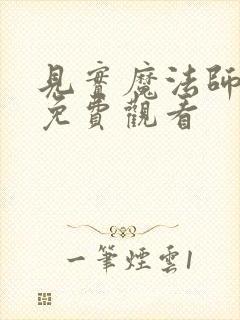 見實魔法師
免費觀看
一筆煙雲1